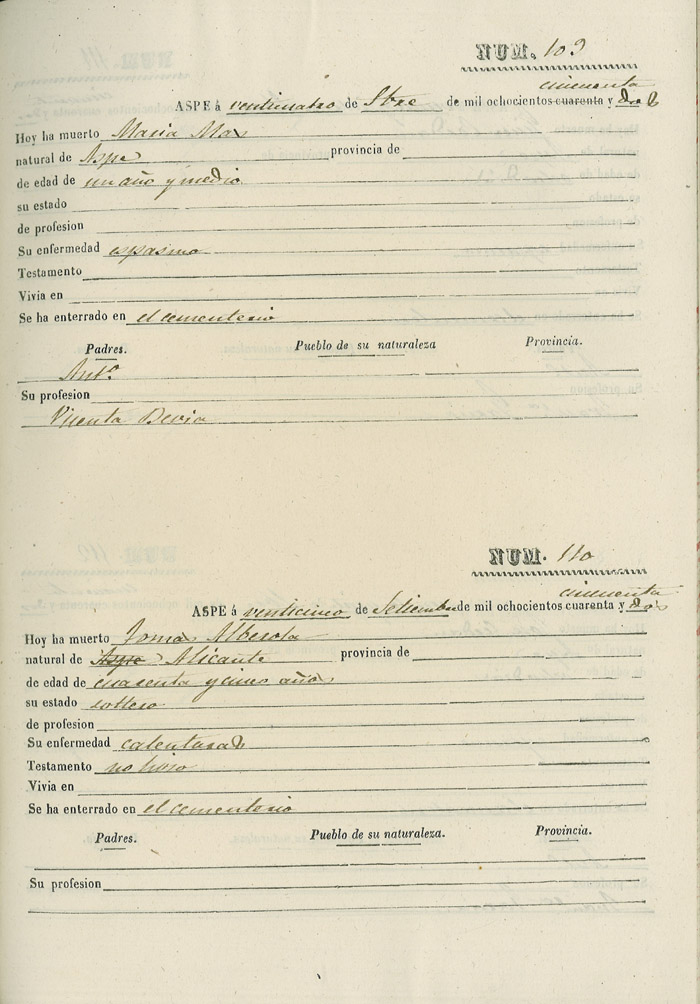 NUM. 109
cincuenta
ASPE á venticuatro de Stre de mil ochocientos cuarenta y dos
Hoy ha muerto Maria Mas
natural de Aspe provincia de
de edad de un año y medio
su estado
de profesion
Su enfermedad espasmo
Testamento
Vivia en
Se ha enterrado en el cementerio
Padres. Pueblo de su naturaleza Provincia.
Anto.
Su profesion
Vicenta Devia
NUM. 110
cincuenta
ASPE á venticinco de Setiembre de mil ochocientos cuarenta y dos
Hoy ha muerto Tomas Alberola
natural de Aspe Alicante provincia de
de edad de cuarenta y cinco años
su estado soltero
de profesion
Su enfermedad calenturas
Testamento no hizo
Vivia en
Se ha enterrado en el cementerio
Padres. Pueblo de su naturaleza. Provincia.
Su profesion